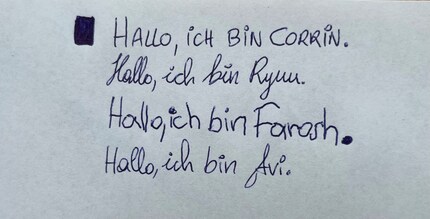 HALLO, iCH BiN CORRiN.
Hallo, ich bin Ryuu.
Hallo, ich bin Farash.
Hallo, ich bin Avi.